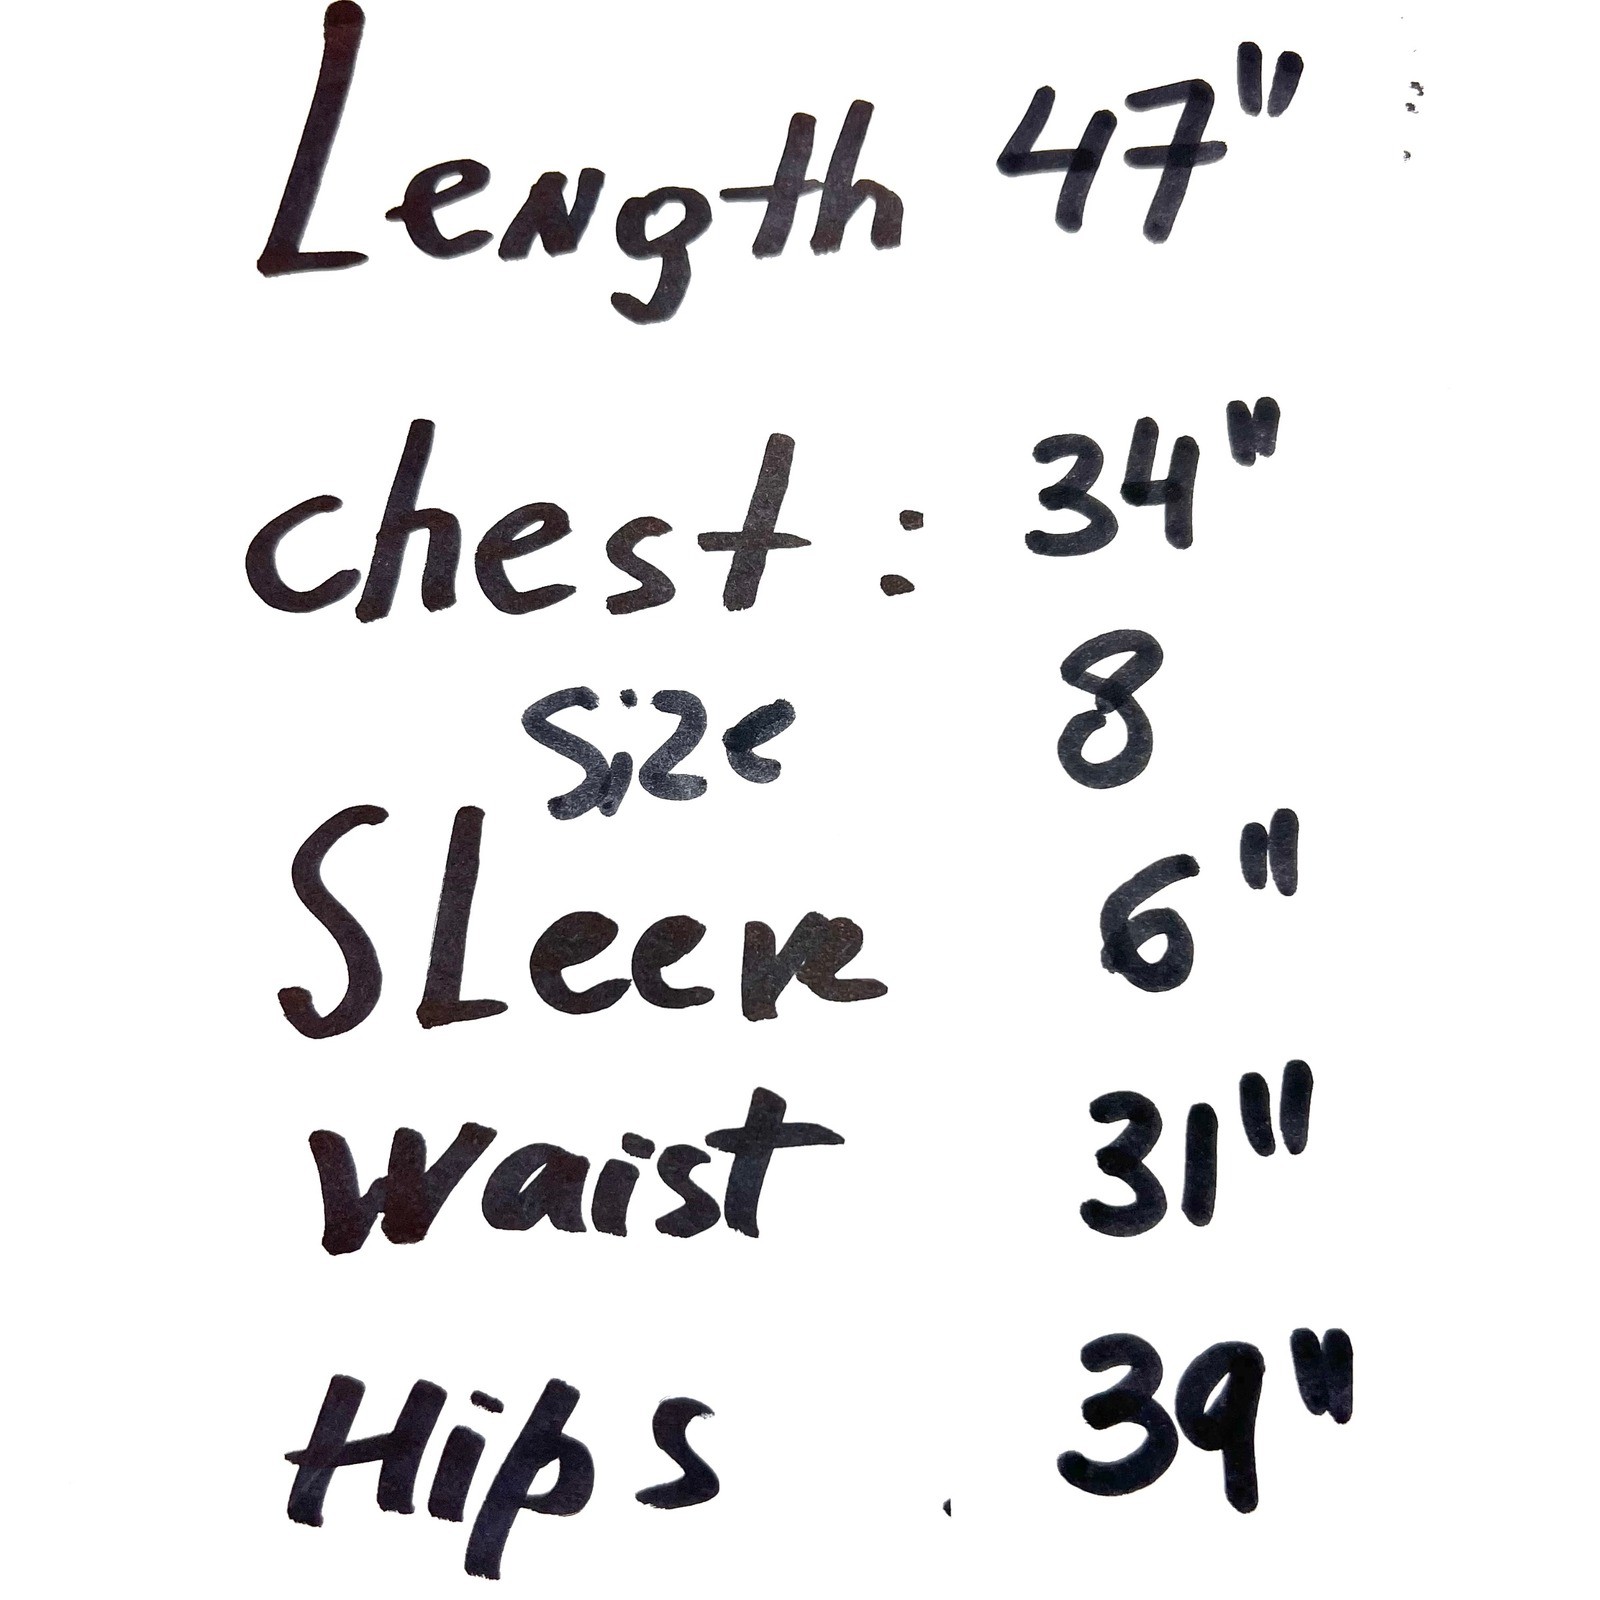 Length 47"
chest : 34"
Size 8
SLeeve 6"
Waist 31"
Hips 39"